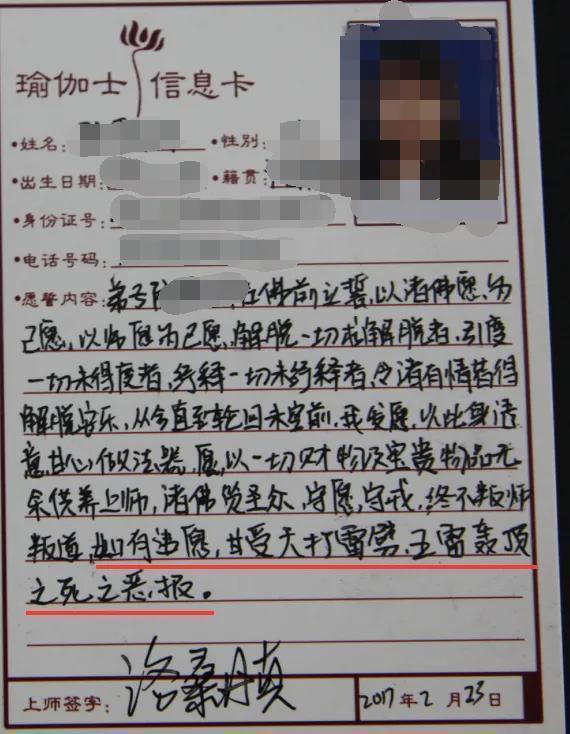 瑜伽士 信息卡
•姓名: •性别:
•出生日期: •籍贯:
•身份证号:
•电话号码:
•愿誓内容: 弟子 在佛前立誓,以诸佛愿为
己愿,以师愿为己愿,解脱一切未解脱者,引度
一切未得度者, 一切未 者,令诸有情皆得
解脱安乐,从今直至轮回未空前,我发愿,以此身语
意,甘心做法器,愿以一切财物及宝贵物品无
余供养上师,诸佛 圣众,守愿,守戒,终不叛师
叛道,如有违愿,甘受天打雷劈,五雷轰顶
之死之恶报。
上师签字: 洛桑丹真 2017年2月23日